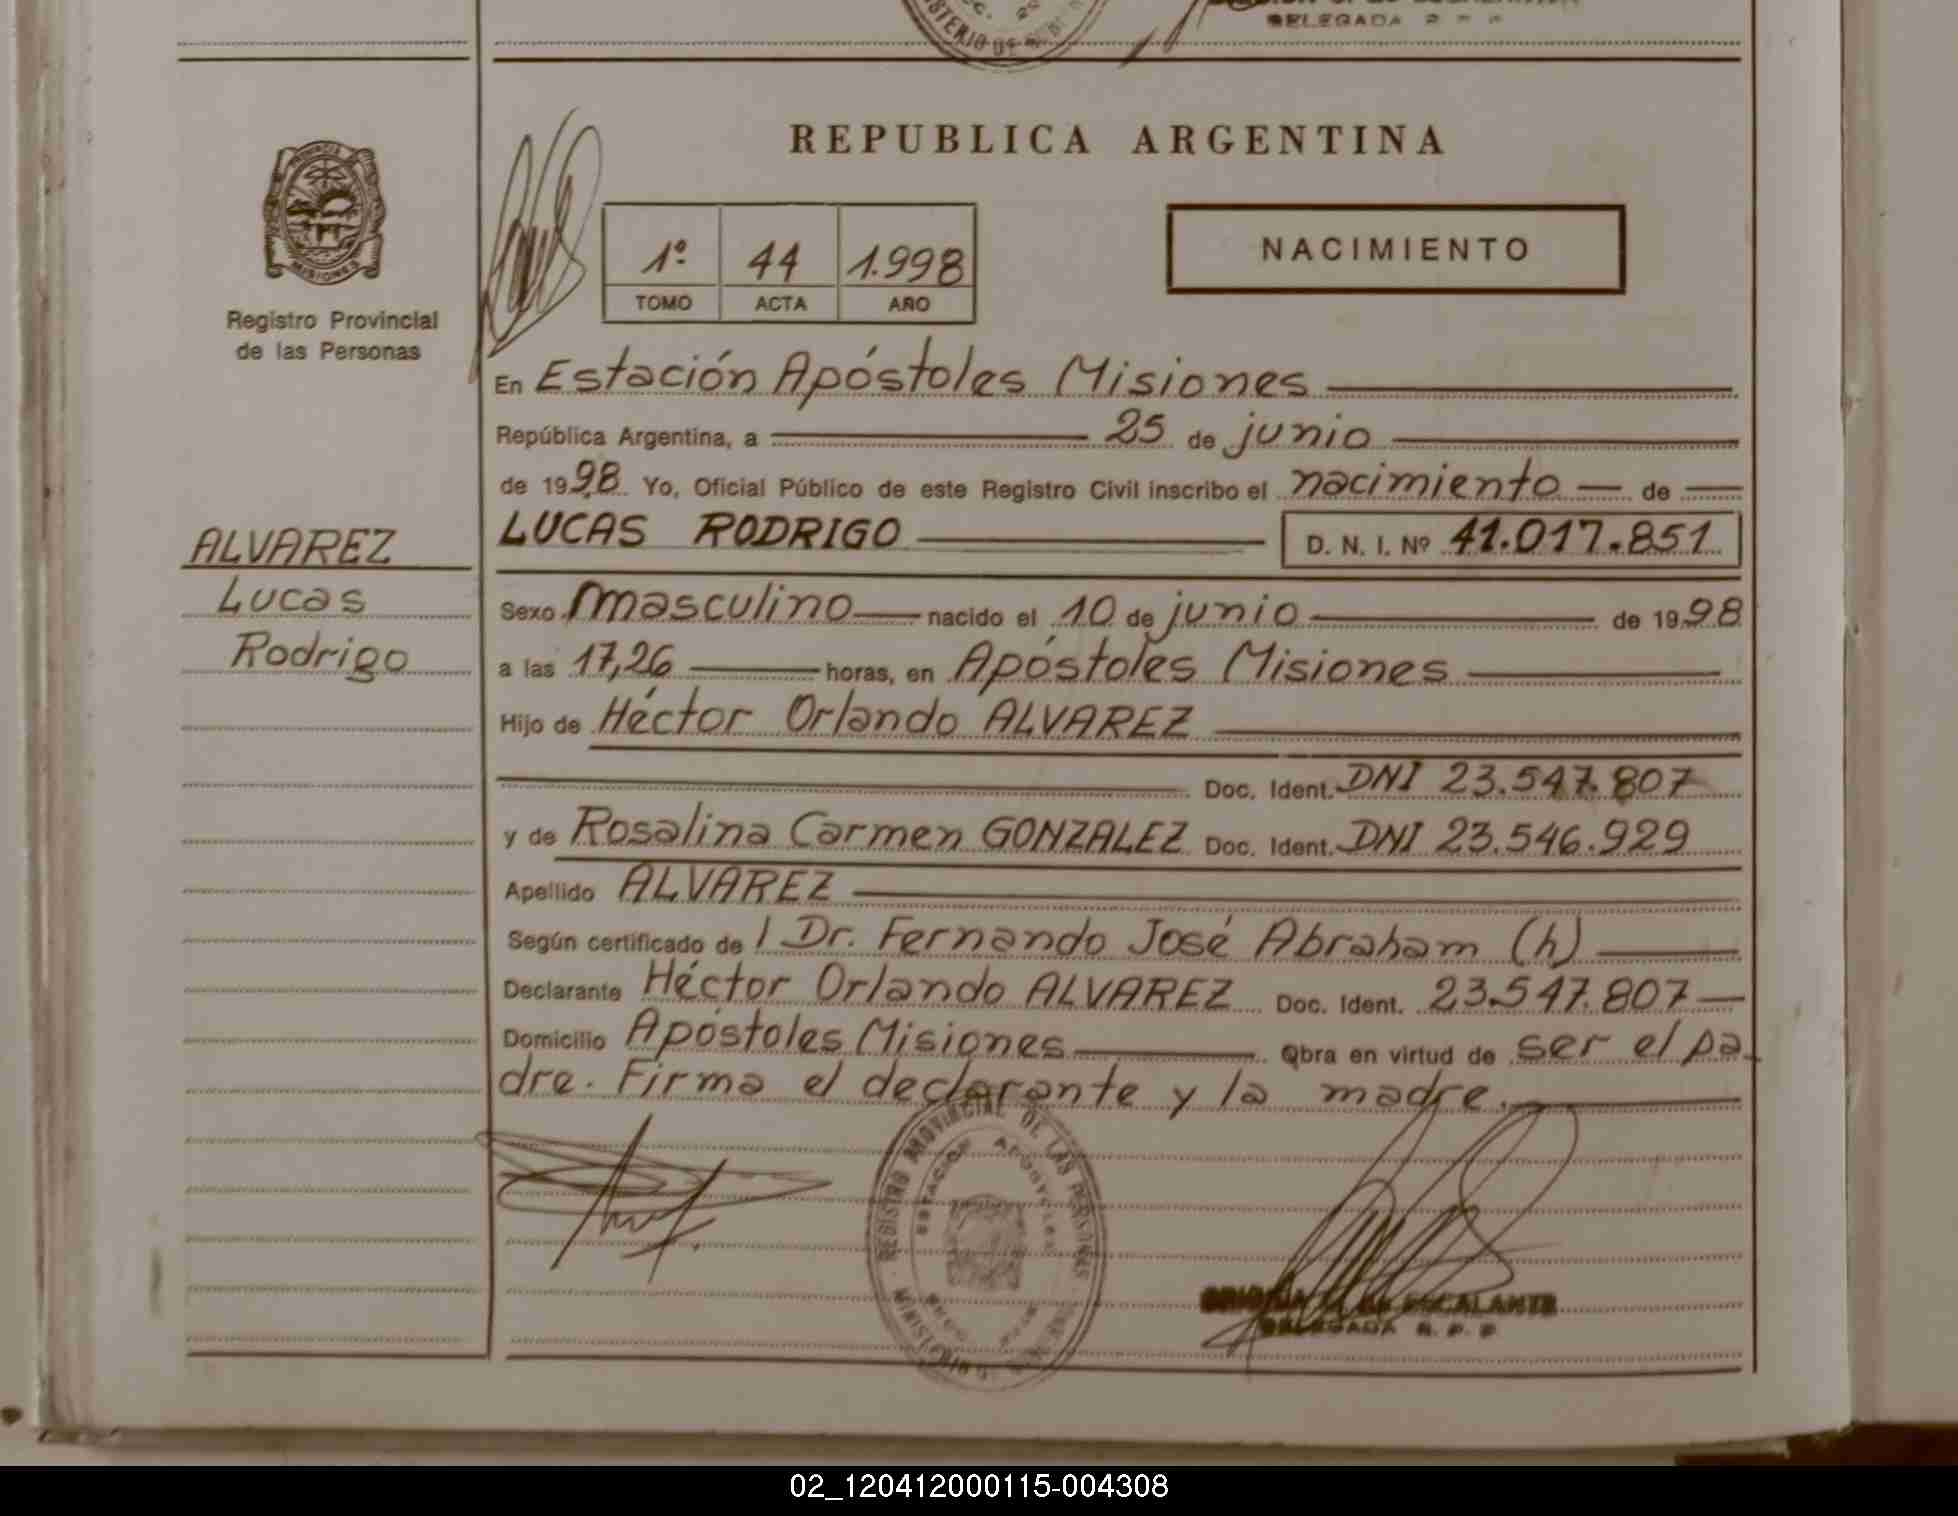 DELEGADA R. P. P.
REPUBLICA ARGENTINA
PROVINCIA DE
MISIONES
Registro Provincial
de las Personas
1º 44 1.998
TOMO ACTA AÑO
NACIMIENTO
En Estación Apóstoles Misiones
República Argentina, a 25 de junio
de 1998 Yo, Oficial Público de este Registro Civil inscribo el nacimiento de
LUCAS RODRIGO D. N. I. Nº 41.017.851
ALVAREZ
Lucas
Rodrigo
Sexo masculino nacido el 10 de junio de 1998
a las 17,26 horas, en Apóstoles Misiones
Hijo de Héctor Orlando ALVAREZ
Doc. Ident. DNI 23.547.807
y de Rosalina Carmen GONZALEZ Doc. Ident. DNI 23.546.929
Apellido ALVAREZ
Según certificado de l Dr. Fernando José Abraham (h)
Declarante Héctor Orlando ALVAREZ Doc. Ident. 23.547.807
Domicilio Apóstoles Misiones Obra en virtud de ser el pa-
dre. Firma el declarante y la madre.
REGISTRO PROVINCIAL DE LAS PERSONAS
ESTACION APOSTOLES
MINISTERIO DE
ESCALANTE
DELEGADA R. P. P.
02_120412000115-004308